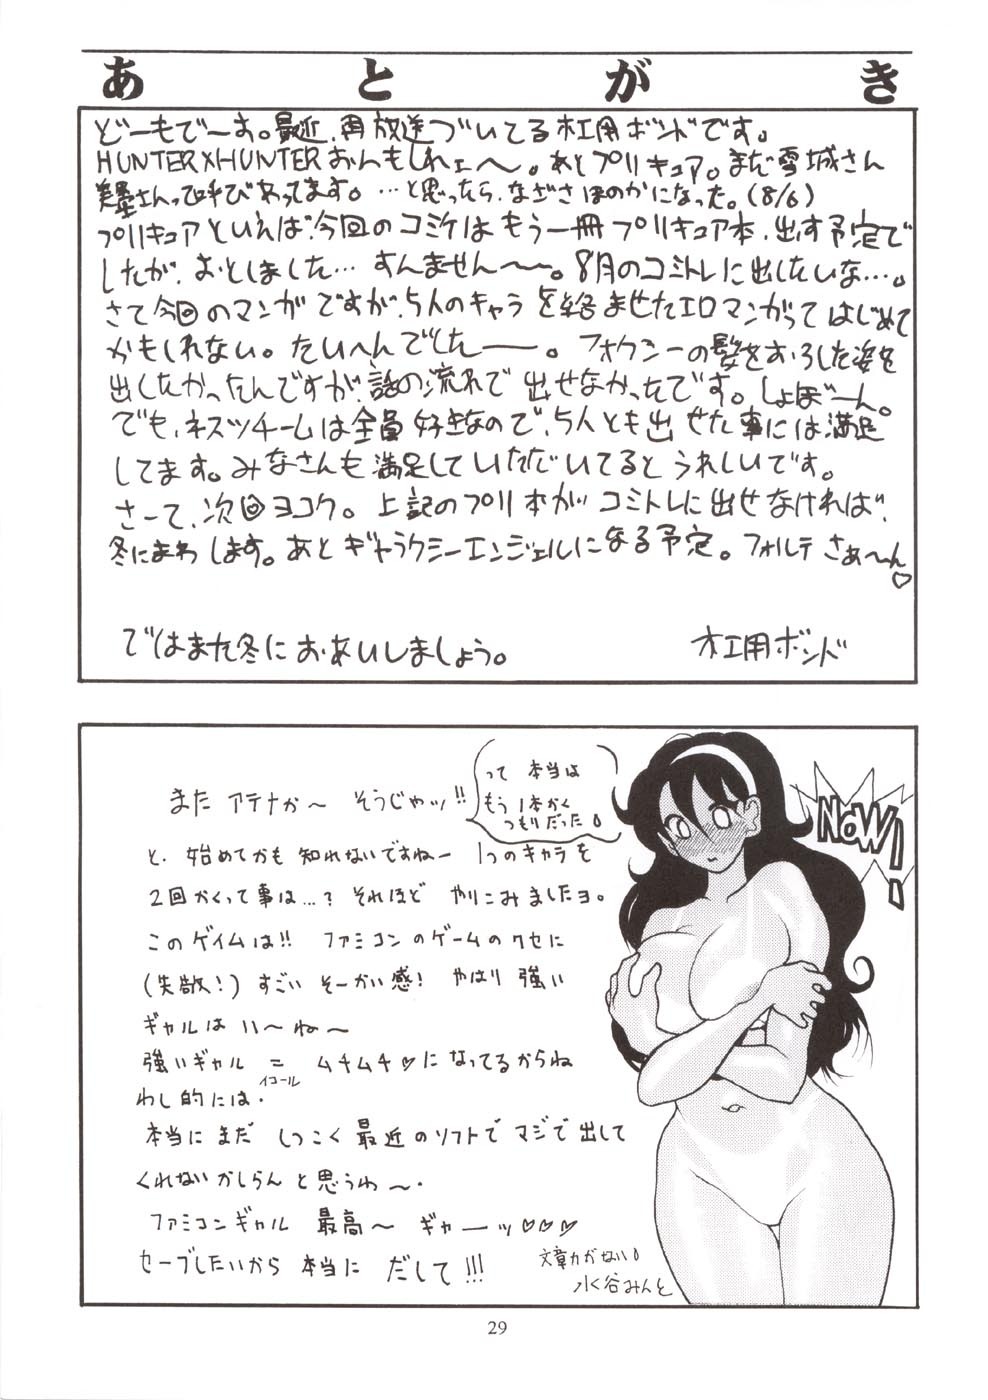 あとがき
どーもでーす。最近、再放送づいてる木工用ボンドです。
HUNTER×HUNTERおんもしれェ～。あとプリキュア。まだ雪城さん
美墨さんって呼びあってます。…と思ったら、なぎさほのかになった。(8/6)
プリキュアといえば、今回のコミケはもう一冊プリキュア本、出す予定で
したが、おとしました…すんません～～。8月のコミトレに出したいな…。
さて今回のマンガですが、5人のキャラを絡ませたエロマンガってはじめて
かもしれない。たいへんでしたーー。フォクシーの髪をおろした姿を
出したかったんですが、話の流れで出せなかったです。しょぼーん。
でも、ネスツチームは全員好きなので、5人とも出せた事には満足
してます。みなさんも満足していただいてるとうれしいです。
さーて、次回ヨコク。上記のプリ本がコミトレに出せなければ、
冬にまわします。あとギャラクシーエンジェルになる予定。フォルテさぁ～ん♡
ではまた冬におあいしましょう。
木工用ボンド
また アテナか～ そうじゃッ!!
って 本当は
もう 1本かく
つもりだった
NOW!
と、始めてかも知れないですねー 1つのキャラを
2回かくって事は…? それほど やりこみましたヨ。
このゲイムは!! ファミコンのゲームのクセに
(失敬!) すごい そーかい感! やはり 強い
ギャルは い～ね～
強いギャル = ムチムチ♡になってるからね
イコール
わし的には・
本当に まだ しつこく 最近のソフトで マジで出して
くれないかしらんと思うわ～・
ファミコンギャル 最高～ ギャーーッ♡♡♡
セーブしたいから 本当に だして!!!
文章力がない
水谷みんと
29